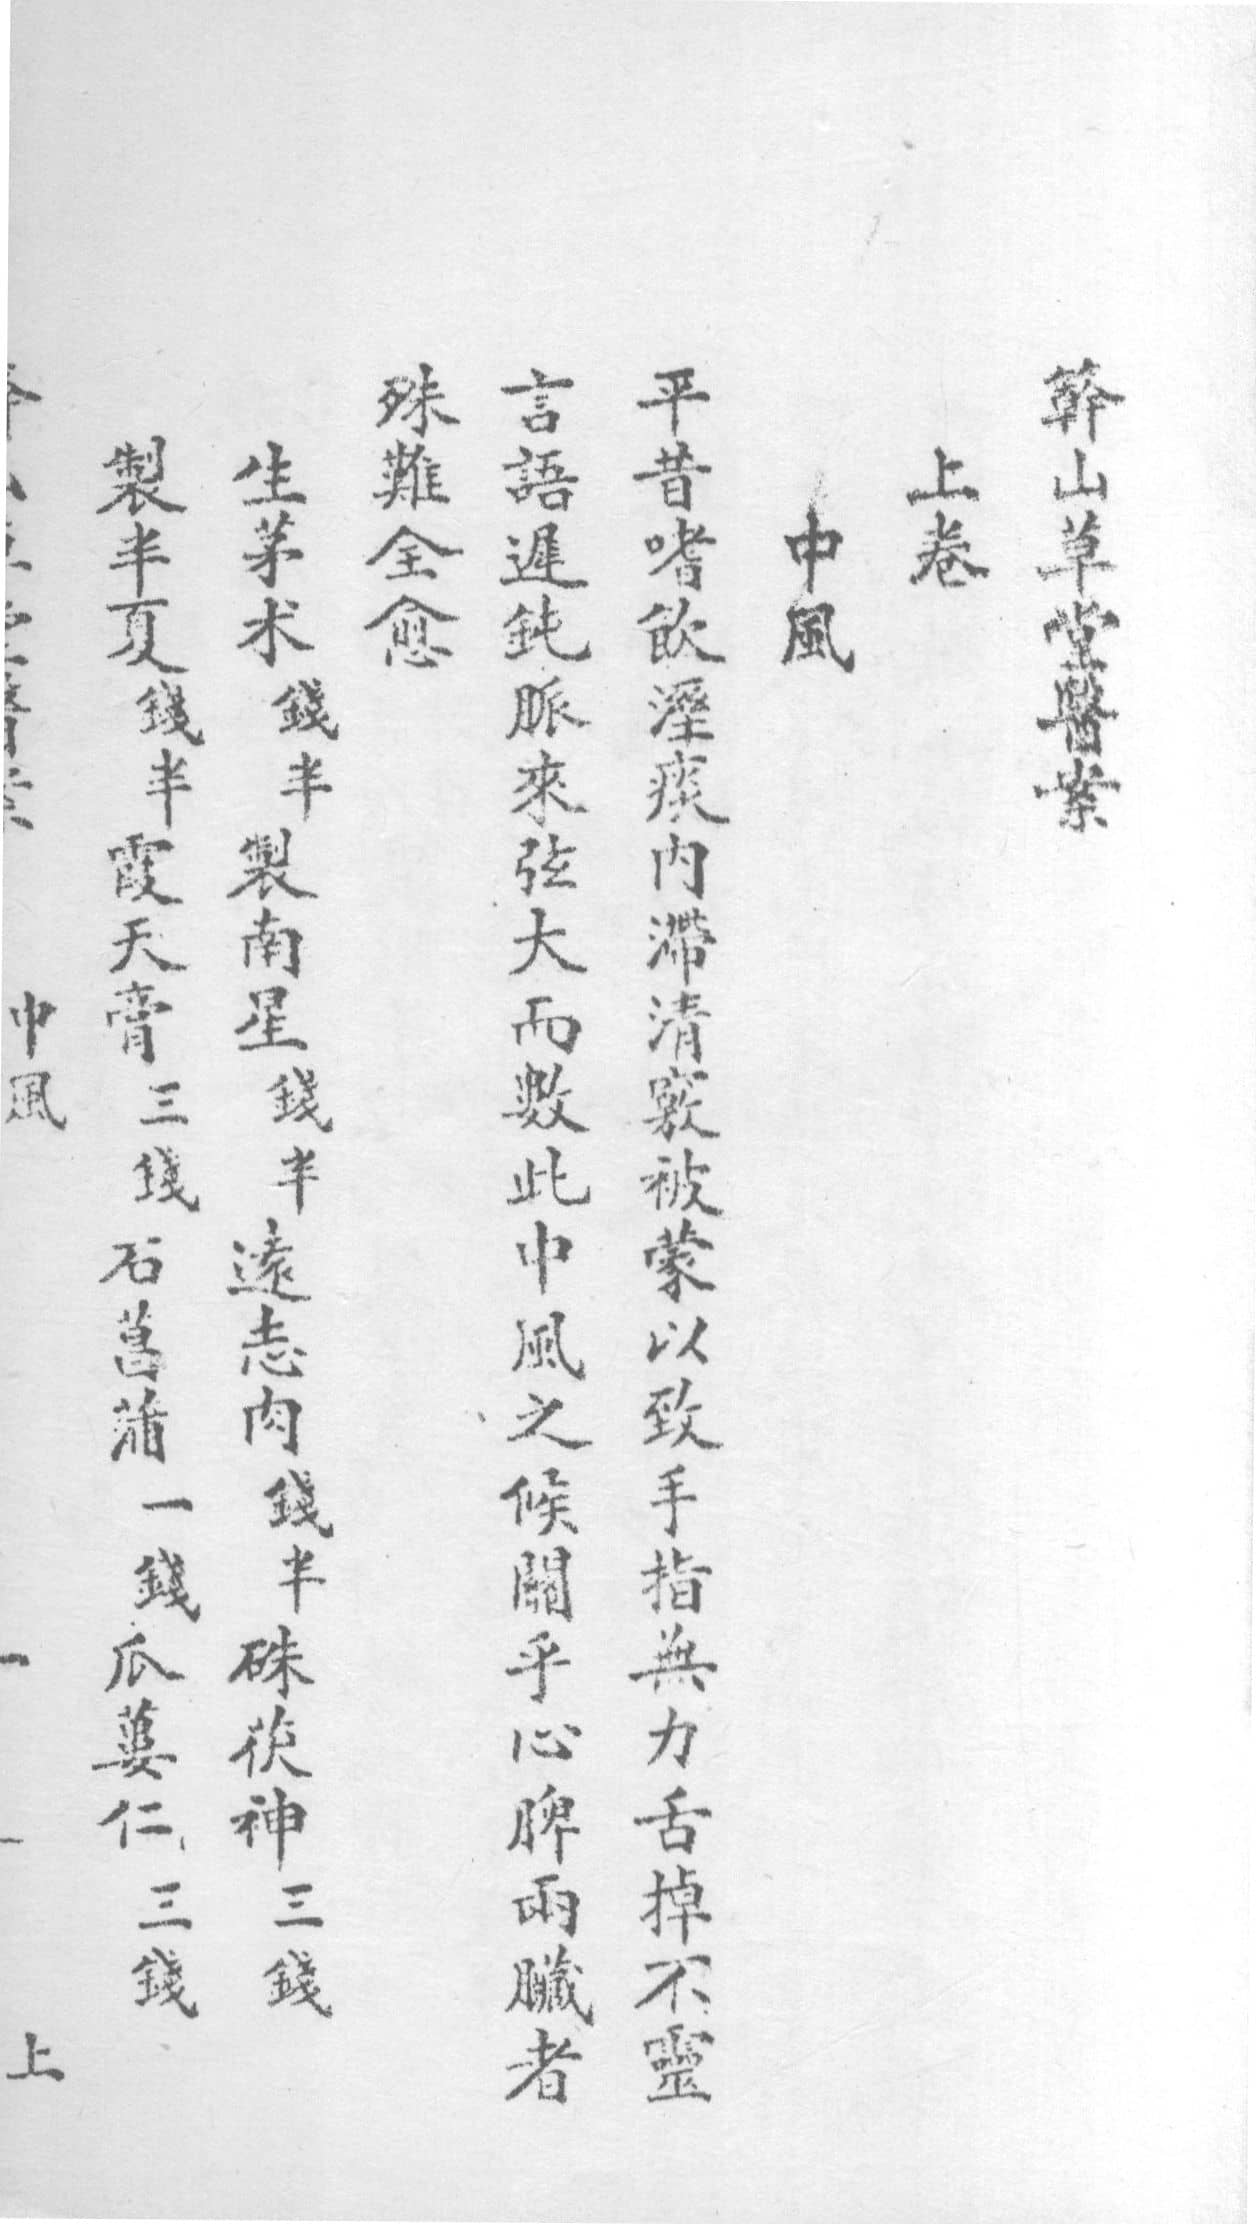 簳山草堂醫案
上卷
中風
平昔嗜飲溼痰内滯清竅被蒙以致手指無力舌掉不靈
言語遲鈍脈來弦大而數此中風之候關乎心脾兩臟者
殊難全愈
生茅术錢半製南星錢半遠志肉錢半硃茯神三錢
製半夏錢半霞天膏三錢石菖蒲一錢瓜蔞仁三錢
中風 一 上